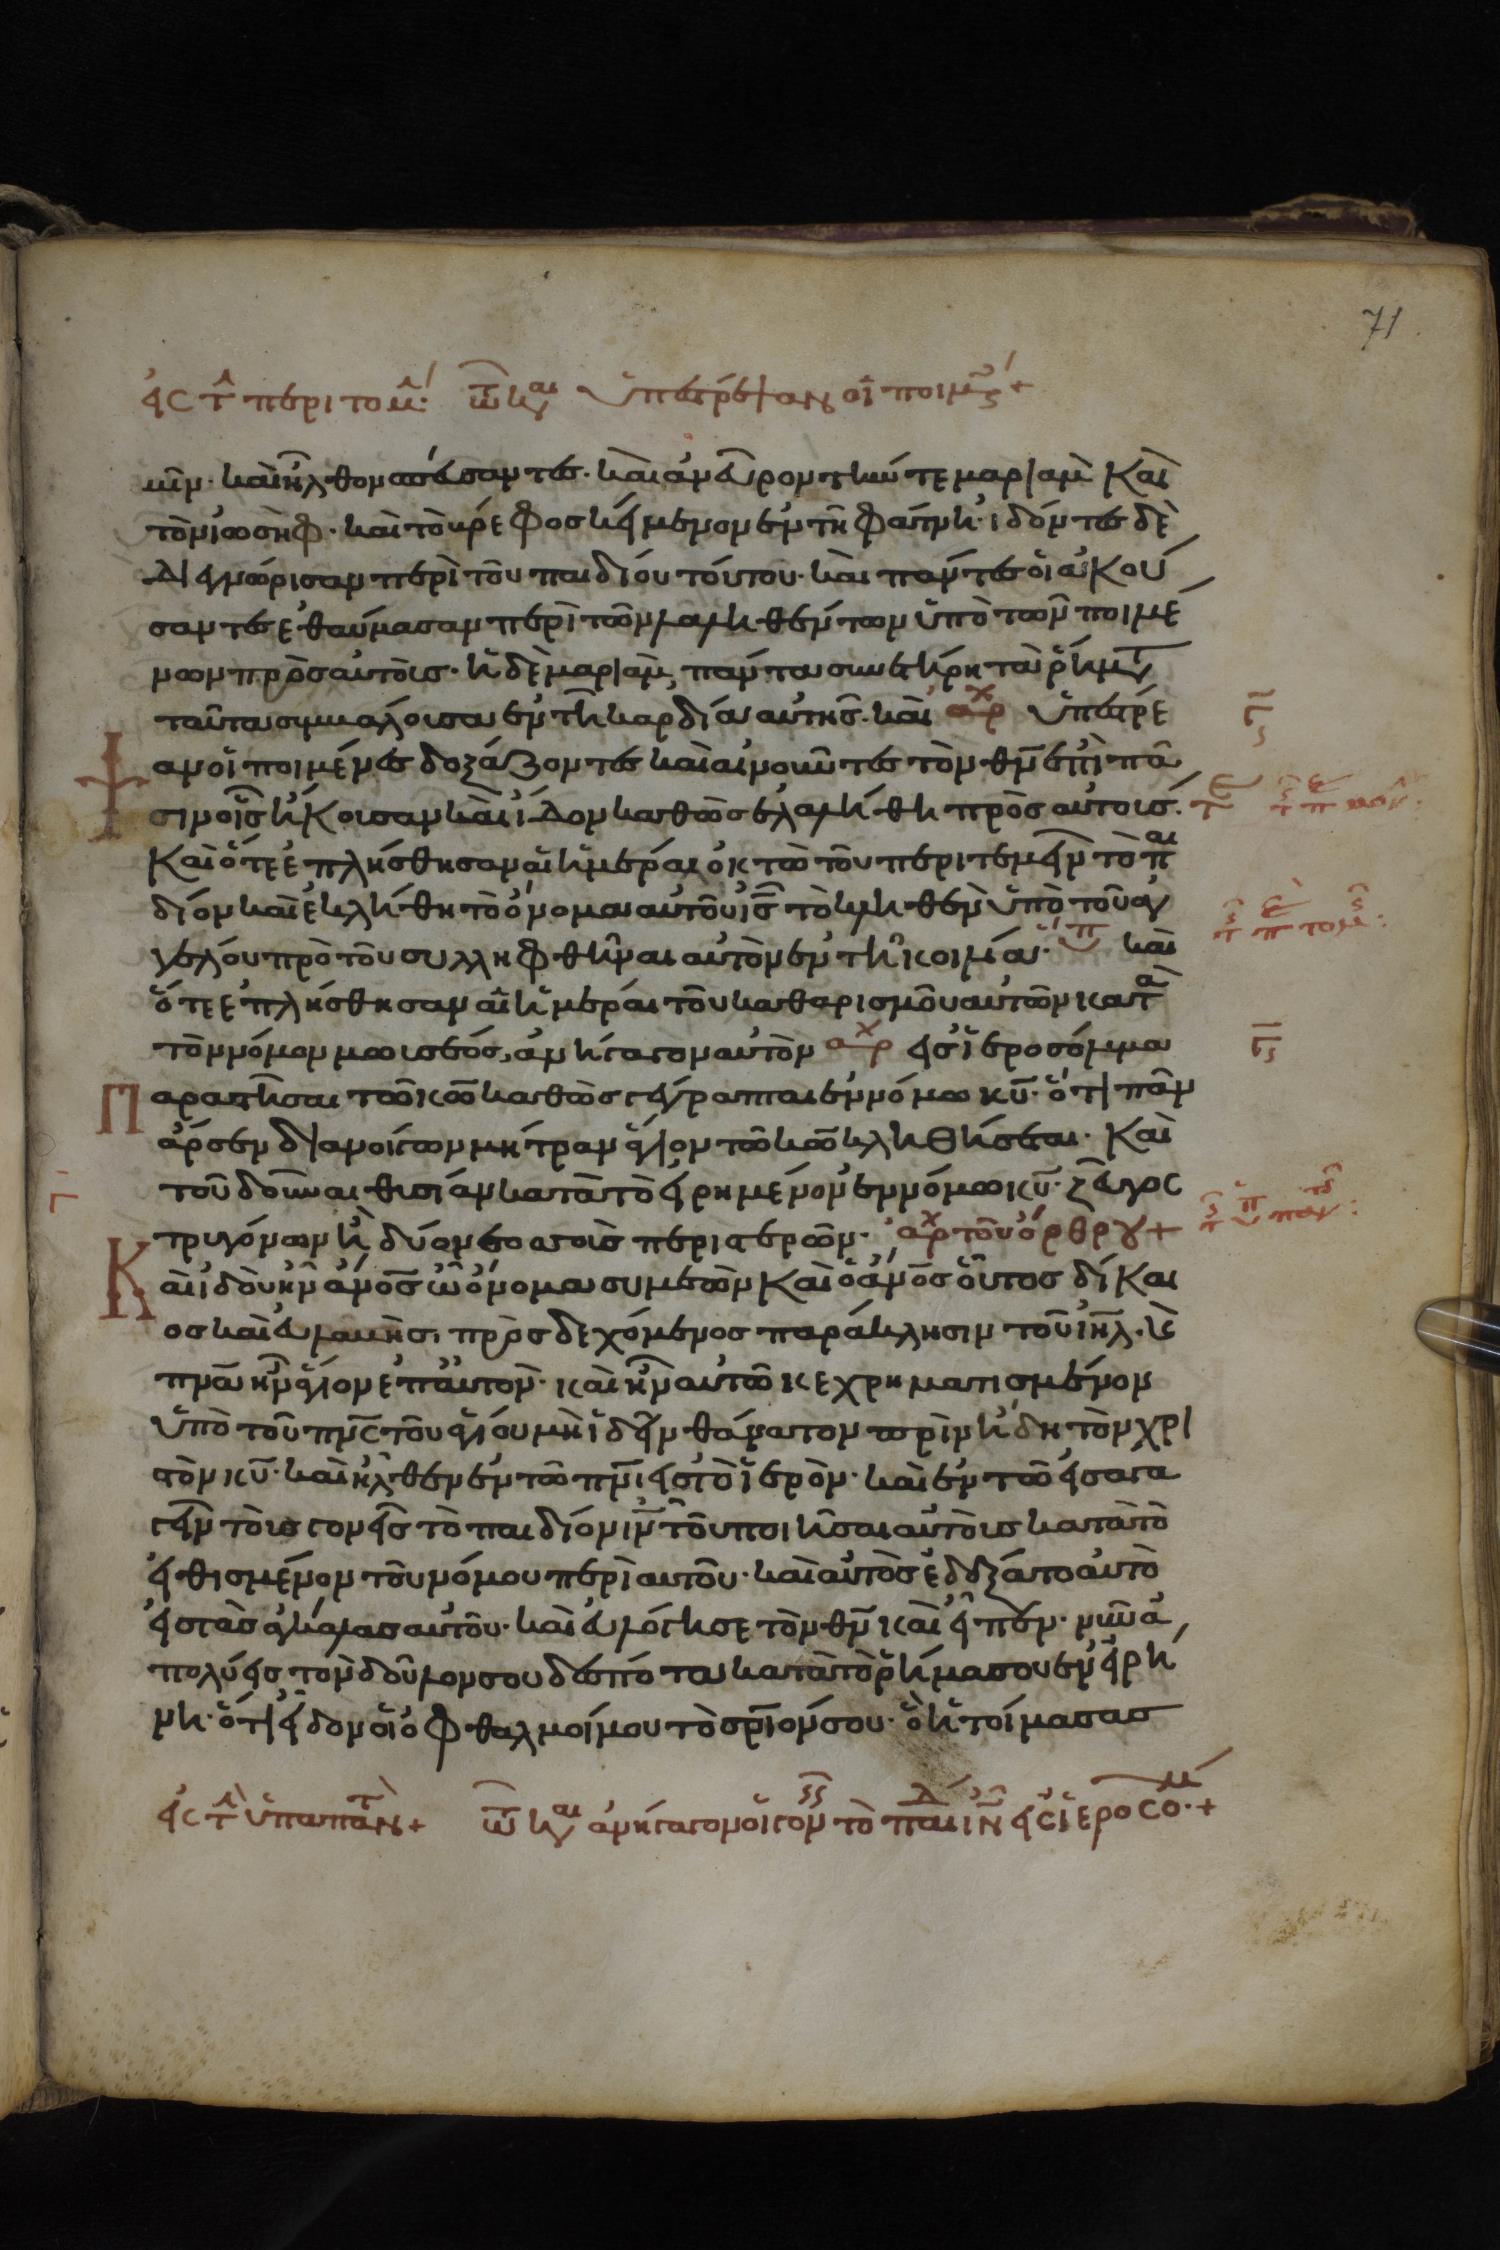 71
εἰς τ̂ περιτομ̂· τῶ κ̅αι ὑπέστρεψαν οἱ ποιμ̅ς +
μῖν· καὶ ἦλθον σπεύσαντες· καὶ ἀνεῦρον τήν τε μαριὰμ καὶ
τὸν ἰωσὴφ· καὶ τὸ βρέφος κείμενον ἐν τῆ φάτνη· ἰδόντες δὲ
διεγνώρισαν περὶ τοῦ παιδίου τούτου· καὶ πάντες οἱ ἀκού
σαντες ἐθαύμασαν περὶ τῶν λαληθέντων ὑπὸ τῶν ποιμέ
νων πρὸς αὐτοὺς· ἡ δὲ μαριὰμ, πάντα συνετήρη τὰ ῥήματ
ταῦτα συμβάλουσα ἐν τῆ καρδία αὐτῆς· καὶ ἀρχ ὑπέστρε
ψαν οἱ ποιμένες δοξάζοντες καὶ αἰνοῦντες τὸν θ̅ν ἐπὶ πᾶ
σιν οἷς ἤκουσαν καὶ ἴδον καθὼς ἐλαλήθη πρὸς αὐτούς·
Καὶ ὅτε ἐπλήσθησαν αἱ ἡμέραι ὀκτὼ τοῦ περιτεμεῖν τὸ παι
δίον καὶ ἐκλήθη τὸ ὄνομα αὐτοῦ ι̅ς τὸ κληθὲν ὑπὸ τοῦ ἀγ
γέλου πρὸ τοῦ συλληφθῆναι αὐτὸν ἐν τῆ κοιλία· ὑπ καὶ
ὅτε ἐπλήσθησαν αἱ ἡμέραι τοῦ καθαρισμοῦ αὐτῶν κατὰ
τὸν νόμον μωυσέος, ἀνήγαγον αὐτὸν ἀρχ εἰς ἱεροσόλυμα
παραστῆσαι τῶ κ̅ω καθὼς γέγραπται ἐν νόμω κ̅υ· ὅτι πᾶν
ἄρσεν διανοίγων μήτραν ἅγιον τῶ κ̅ω κληθήσεται· Καὶ
τοῦ δοῦναι θυσίαν κατὰ τὸ εἰρημένον ἐν νόμω κ̅υ· ζεῦγος
τρυγόνων ἢ δύο νεοσσοὺς περιστερῶν· ἀρχ τοῦ ὄρθρου +
Καὶ ἰδοὺ ἦν ἄνο̅ς ὧ ὄνομα συμεὼν καὶ ὁ ἄνο̅ς οὗτος δίκαι
ος καὶ εὐλαβὴς, πρὸσδεχόμενος παράκλησιν τοῦ ι̅η̅λ· κ̀
πν̅α ἦν ἅγιον ἐπ' αὐτον· καὶ ἦν αὐτῶ κεχρηματισμένον
ὑπὸ τοῦ πν̅ς τοῦ ἁγίου μὴ ἰδεῖν θάνατον πρὶν ἢ ἴδη τὸν χρι
στὸν κ̅υ· καὶ ἦλθεν ἐν τῶ πν̅ι εἰς τὸ ἱερὸν· καὶ ἐν τῶ εἰσαγα
γεῖν τοὺς γονεῖς τὸ παιδίον ι̅ν τοῦ ποιῆσαι αὐτοὺς κατὰ τὸ
εἰθισμένον τοῦ νόμου περὶ αὐτοῦ· καὶ αὐτὸς ἐδέξατο αὐτὸ
εἰς τὰς ἀγκάλας αὐτοῦ· καὶ εὐλόγησε τὸν θ̅ν καὶ εἶπεν· νῦν ἀ
πολύεις τον δοῦλον σου δέσποτα κατὰ τὸ ῥῆμα σου ἐν εἰρή
νη· ὅτι εἶδον οἱ ὀφθαλμοί μου τὸ σρ̅ιόν σου· ὃ ἡτοίμασας
εἰς τ̂ ὑπαπαντ̀ + τῶ κ̅αι ἀνήγαγον οἱ γονεῖς τὸ παιδ ι̅ν εἰς ἱεροσολ· +